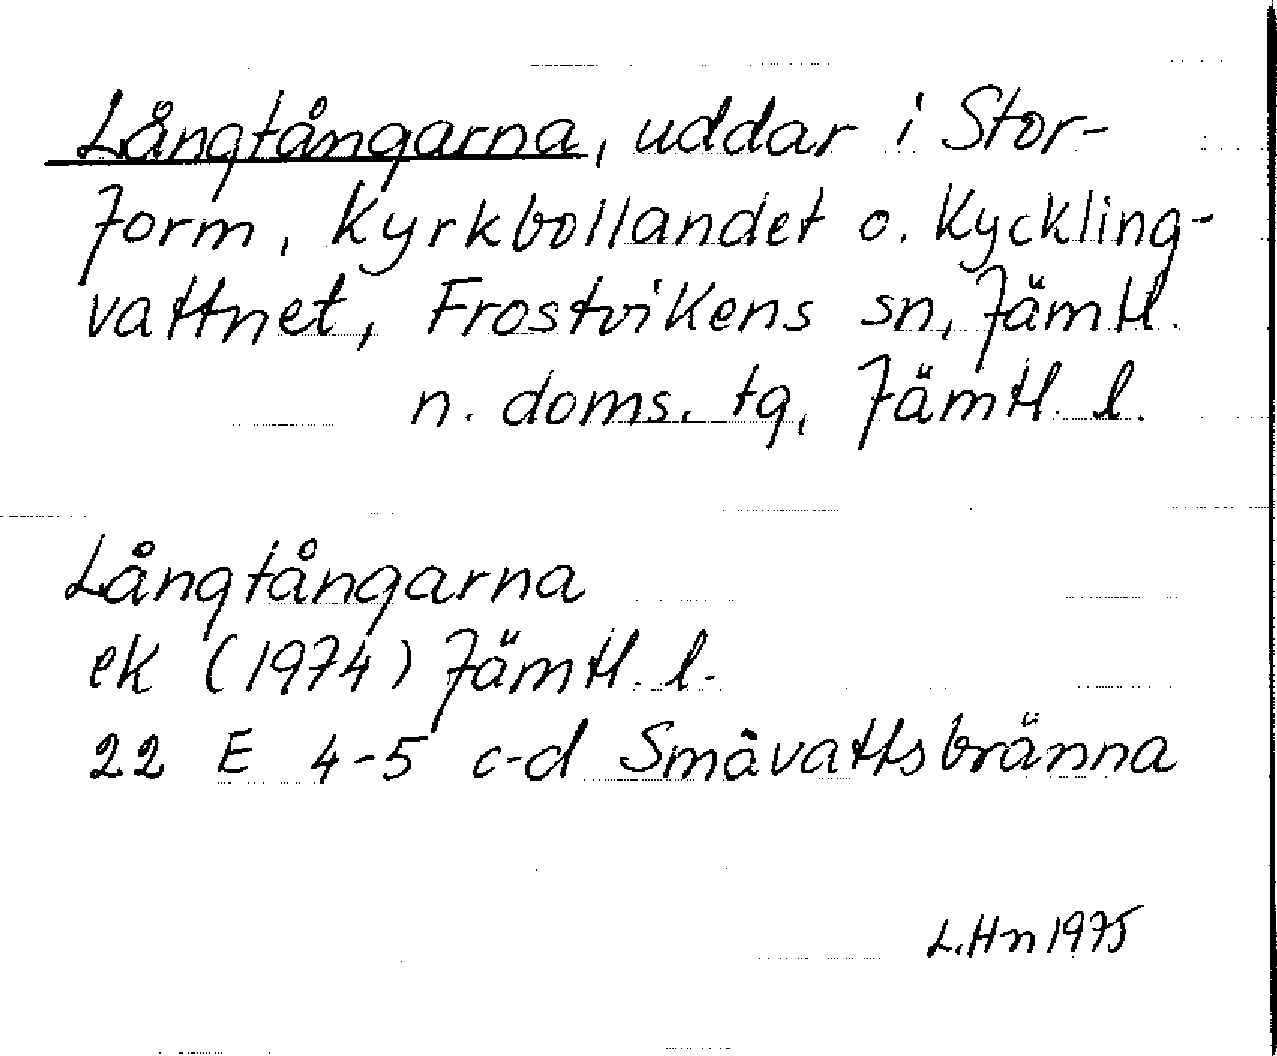 Långtångarna, uddar i Stor-
Jorm, Kyrkbollandet o. Kyckling-
vattnet, Frostvikens sn, Jämtl.
n. doms. tg, Jämtl. l.
Långtångarna
ek (1974) Jämtl. l.
22 E 4-5 c-d Småvattsbränna
L.Hn 1975